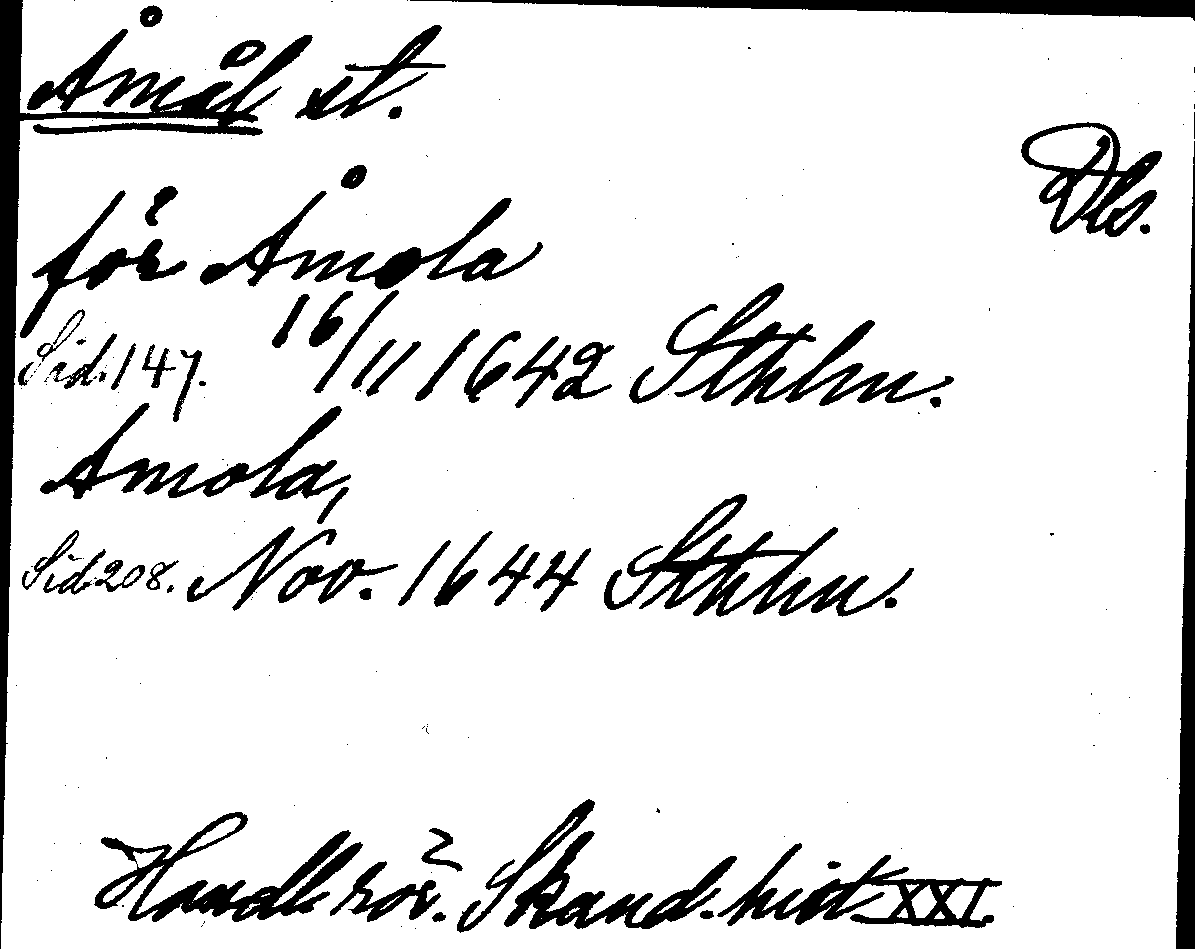 Åmål st.
Dls.
för Åmola
Sid. 147. 16/11 1642 Sthlm.
Amola,
Sid. 208. Nov. 1644 Sthlm.
Handl. rör. Skand. hist XXI.